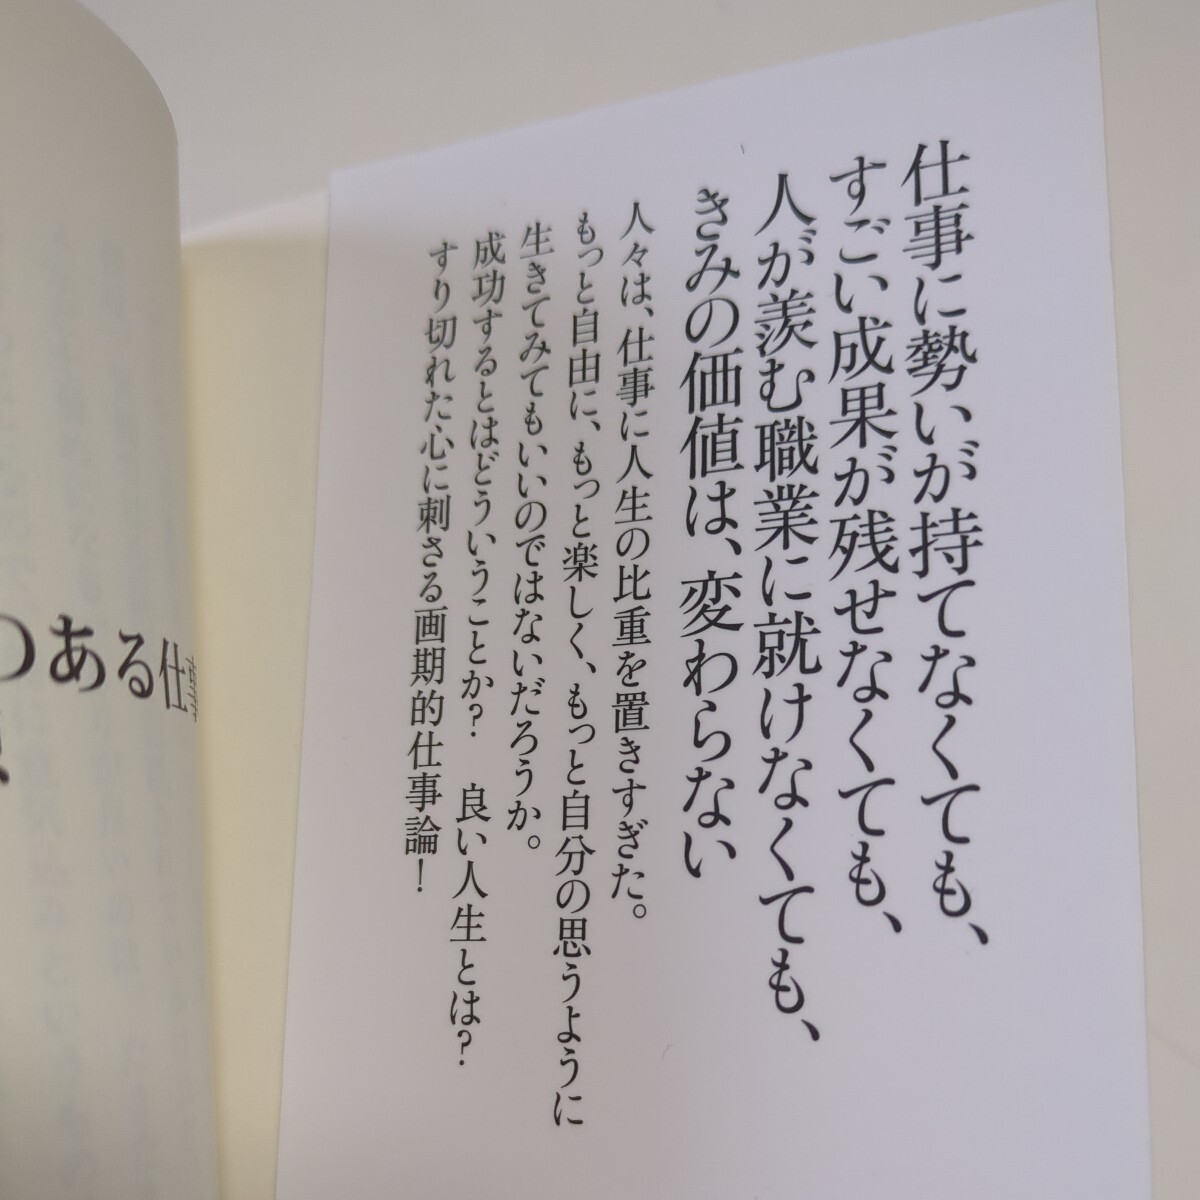 仕事に勢いが持てなくても、
すごい成果が残せなくても、
人が羨む職業に就けなくても、
きみの価値は、変わらない
人々は、仕事に人生の比重を置きすぎた。
もっと自由に、もっと楽しく、もっと自分の思うように
生きてみてもいいのではないだろうか。
成功するとはどういうことか? 良い人生とは?
すり切れた心に刺さる画期的仕事論!
ある仕